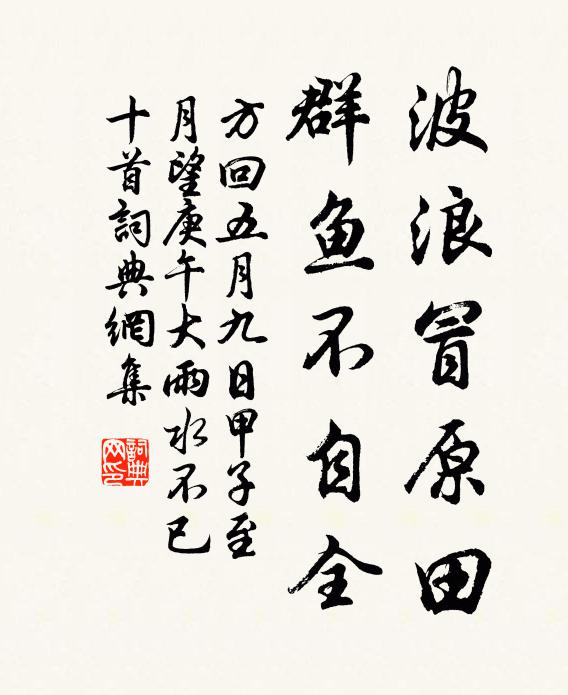 波浪冒原田
群鱼不自全
方回五月九日甲子至
月望庚午大雨水不已
十首詞典網集
詞典
网印